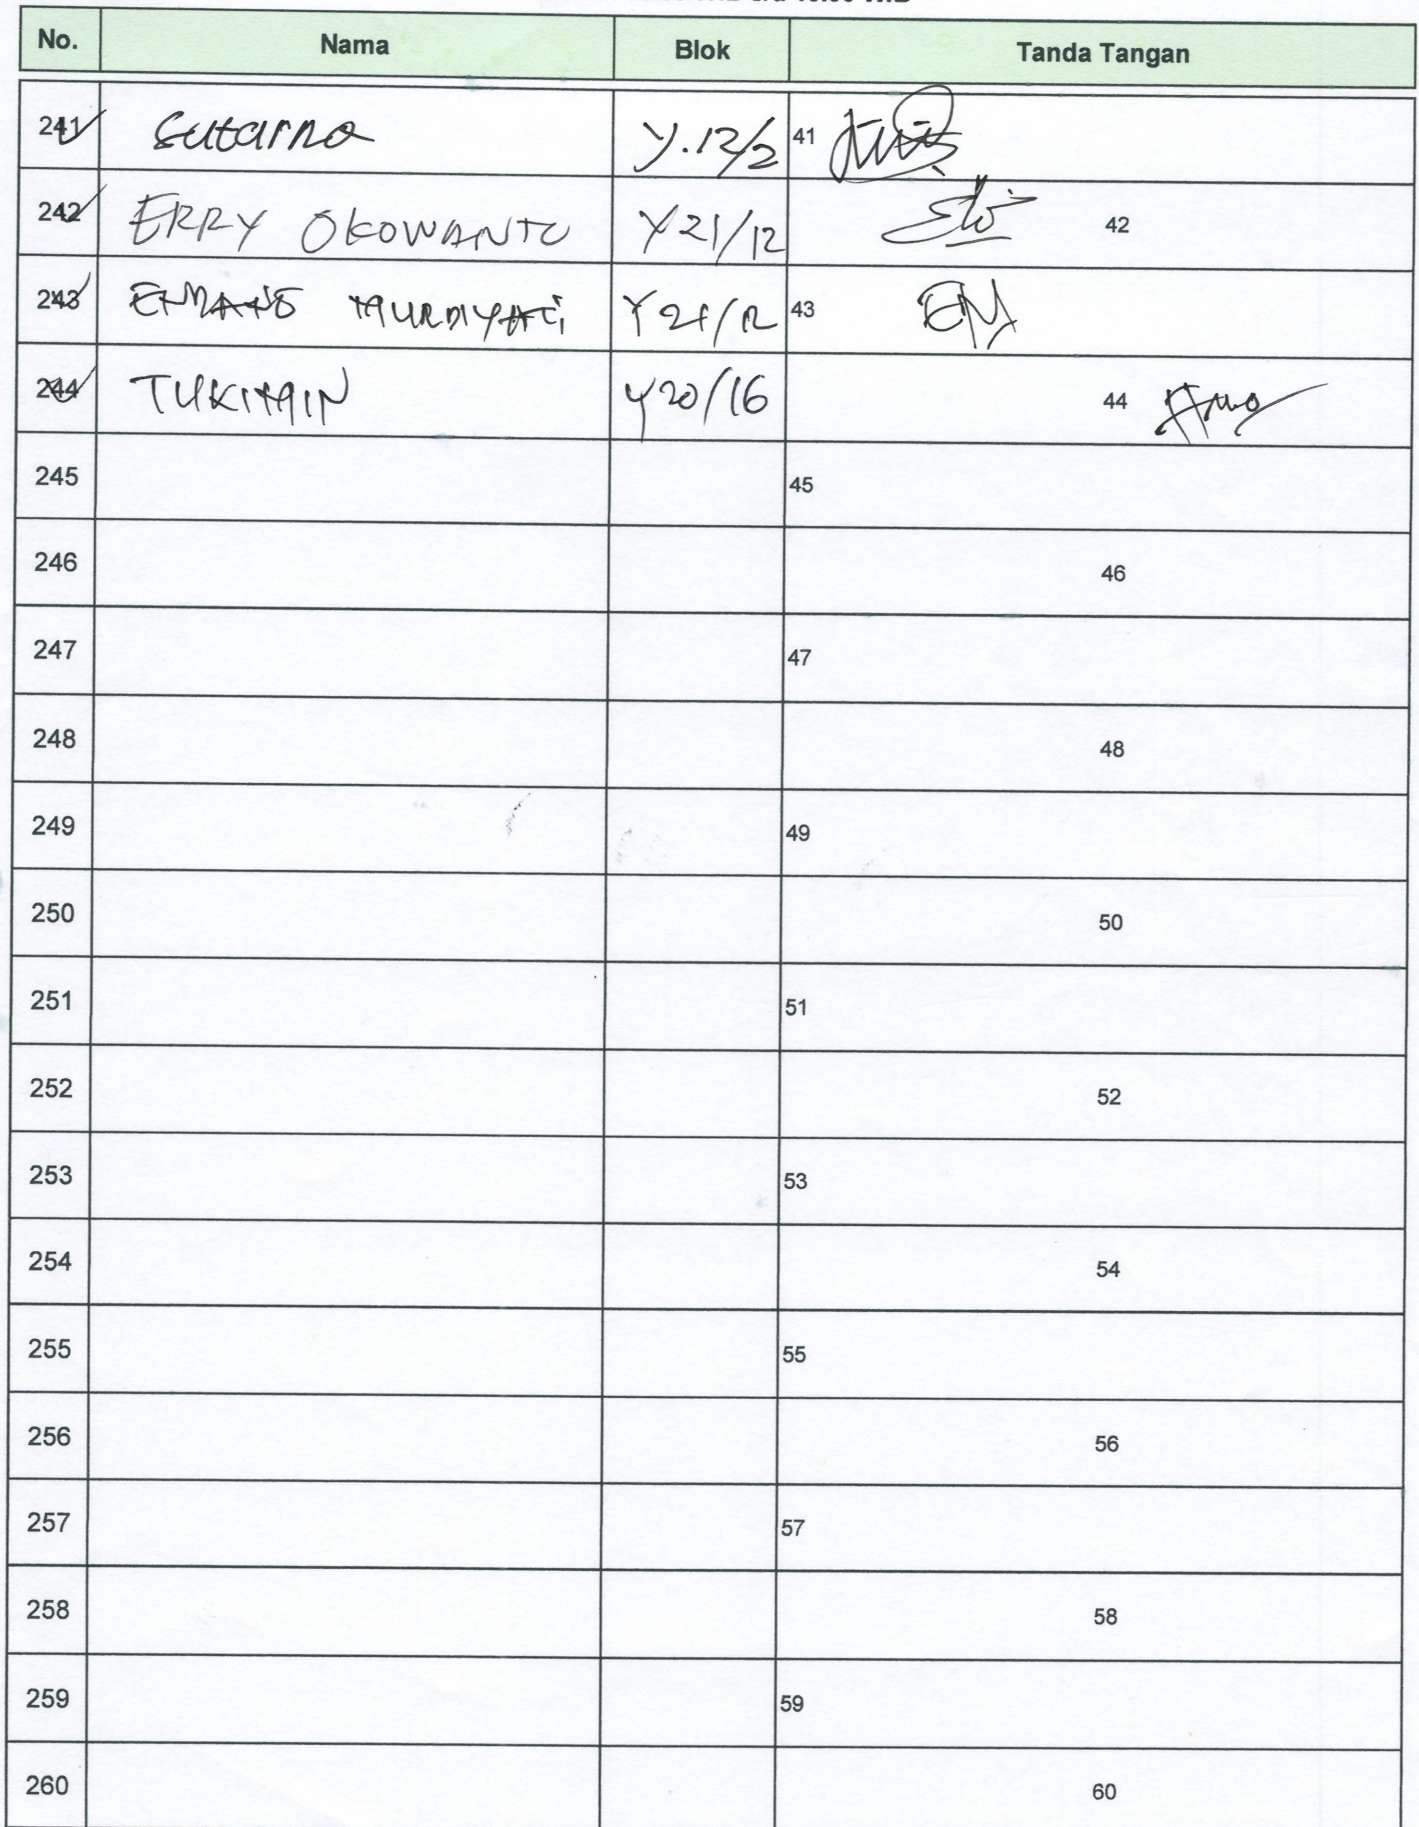 No. Nama Blok Tanda Tangan
241 Sutarno Y.12/2 41
242 ERRY OKOWANTO Y21/12 42
243 MURDIYATI Y21/12 43 EM
244 TUKIMIN Y20/16 44
245 45
246 46
247 47
248 48
249 49
250 50
251 51
252 52
253 53
254 54
255 55
256 56
257 57
258 58
259 59
260 60